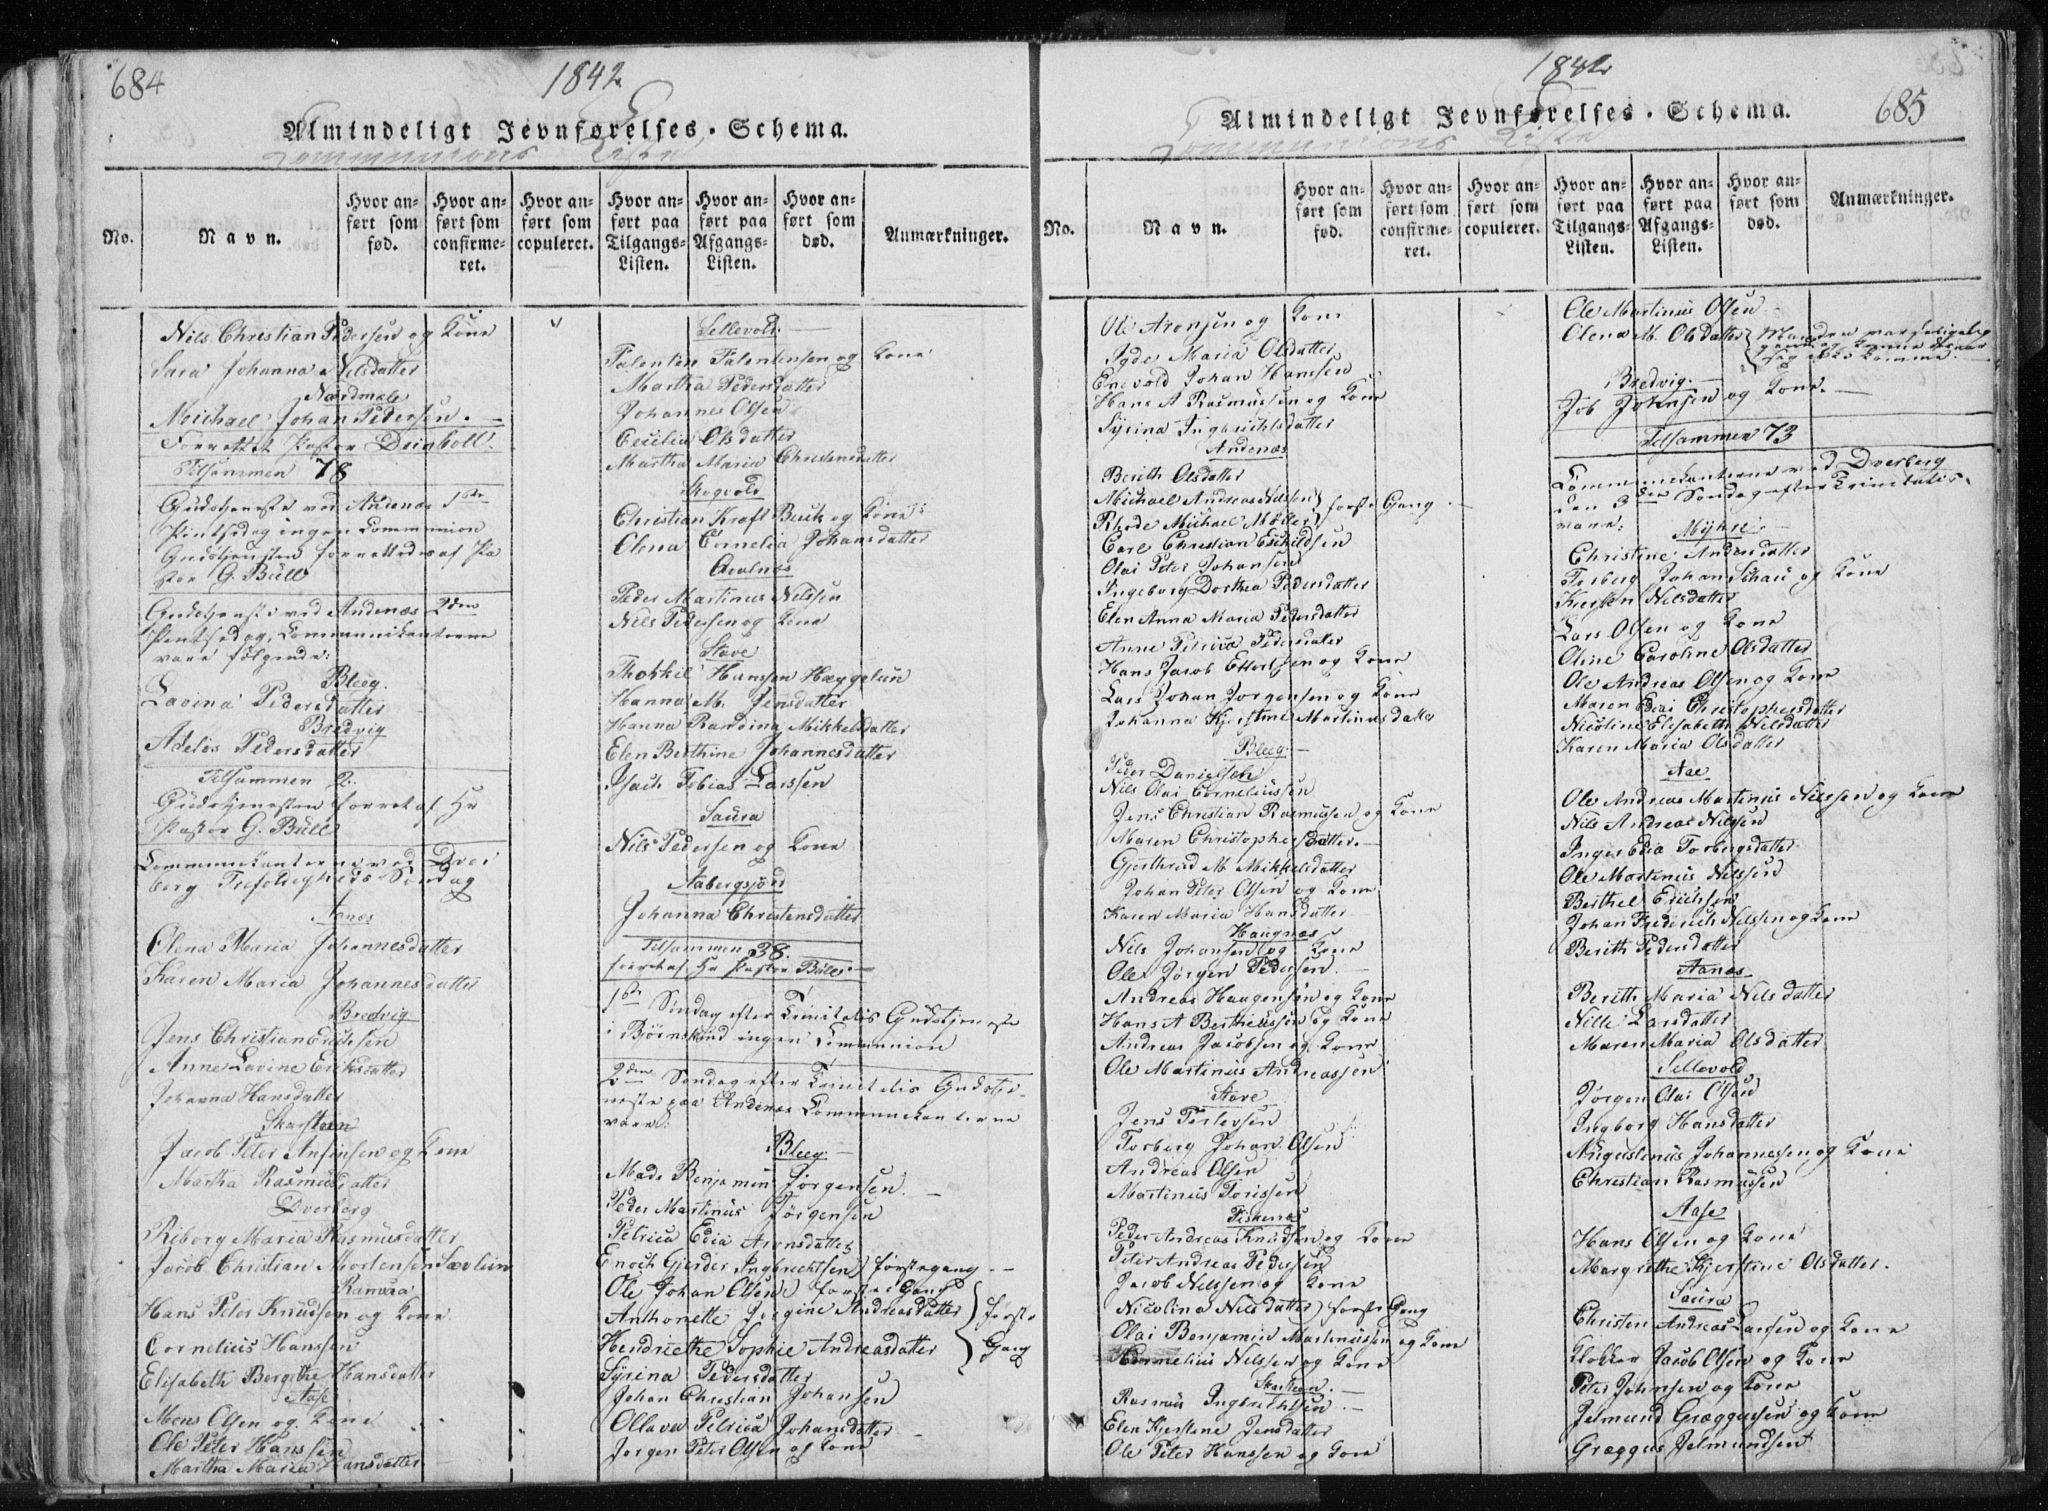 684
1842
Almindeligt Jevnførelses-Schema.
Communions Liste
No.
Navn.
Hvor anført som fød.
Hvor anført som confirmeret.
Hvor anført som copuleret.
Hvor anført paa Tilgangs-Listen.
Hvor anført paa Afgangs-Listen.
Hvor anført som død.
Anmærkninger.
Nils Christian Pedersen og Kone
Sara Johanna Nilsdatter
Nordmele
Michael Johan Pedersen.
Forrettet Pastor Deinboll.
Tilsammen 78
Gudstjeneste ved Andenæs 1ste
Pintsedag ingen Communion
Gudstjensten forrettedes af Pa
stor G. Bull
Gudstjeneste ved Andenæs 2den
Pintsedag, Communikanterne
vare følgende:
Bleeg.
Lavina Pedersdatter
Bredvig
Adelos Pedersdatter
Tilsammen 2.
Gudstjenesten forret af Hr
Pastor G. Bull
Communikanterne ved Dver
berg Trefoldigheds Søndag
Aanes
Elena Maria Johannesdatter
Karen Maria Johannesdatter
Bredvig
Jens Christian Erichsen
Anne Lavine Eriksdatter
Johanna Hansdatter
Skarsteen
Jacob Peter Ansinsen og Kone
Martha Rasmusdatter
Dverberg
Riborg Maria Rasmusdatter
Jacob Christian Mortensen
Ramsaa
Hans Peter Knudsen og Kone
Cornelius Hanssen
Elisabeth Bergithe Hansdatter
Aase
Mons Olsen og Kone
Ole Peter Hanssen
Martha Maria Hansdatter
Sellevold.
Falentin Falentinsen og Kone
Martha Pedersdatter
Johannes Olsen
Cecilia Olsdatter
Martha Maria Christensdatter
Skogvold
Christian Kraft Benk og Kone
Olena Cornelia Johansdatter
Avelnes
Peder Martinus Nilssen
Nils Pedersen og Kone
Stave
Thorkil Hansen Hæggelun
Hanna M. Jensdatter
Hanna Randina Mikkelsdatter
Elen Berthine Johannesdatter
Isach Tobias Larssen
Saura
Nils Pedersen og Kone
Aabergsjord
Johanna Christensdatter
Tilsammen 38.
forret af Hr Pastor Bull
1ste Søndag efter Trinitatis Gudstjeneste
i Bjørnskind ingen Communion
2den Søndag efter Trinitatis Gudstje-
neste paa Andenæs Communikanterne
vare:
Bleeg
Mads Benjamin Jørgensen.
Peder Martinus Jørgensen
Petrica Edia Aronsdatter
Enoch Gjerder Ingbrechtsen) første gang.
Ole Johan Olsen) første Gang
Anthonette Jorgine Andreasdatter } første
Hendriethe Sophie Andreasdatter } Gang
Syrina Pedersdatter
Johan Christian Johansen
Ollava Petrica Johansdatter
Jorgen Peter Olsen og Kone
1842
685
Almindeligt Jevnførelses-Schema.
Communions Liste
No.
Navn.
Hvor anført som fød.
Hvor anført som confirmeret.
Hvor anført som copuleret.
Hvor anført paa Tilgangs-Listen.
Hvor anført paa Afgangs-Listen.
Hvor anført som død.
Anmærkninger.
Ole Aronsen og Kone
Maria Olsdatter
Enevold Johan Hanssen
Hans A Rasmussen og Kone
Syrina Ingbrichtsdatter
Andenæs
Berith Olsdatter
Michael Andreas Nilsen } første Gang
Rhode Michael Møller }
Carl Christian Eschildsen
Olai Peter Johansen
Ingeborg Dorthea Pedersdatter
Elen Anna Maria Pedersdatter
Anne Petrica Pedersdatter
Hans Jacob Ellertsen og Kone
Lars Johan Jorgensen og Kone
Johanna Kjerstine Martinusdatter
Bleeg
Peder Danielsen
Nils Olai Corneliussen
Jens Christian Rasmussen og Kone
Maren Christophersdatter
Gjerthrud M Mikkelsdatter
Johan Peter Olsen og Kone
Karen Maria Hansdatter
Haugnæs
Nils Johansen og Kone
Ole Jørgen Pedersen.
Andreas Haagensen og Kone
Hans A Bertheussen og Kone
Andreas Jacobsen og Kone
Ole Martinus Andreassen
Stave
Jens Terlevsen
Torberg Johan Olsen
Andreas Olsen
Martinus Torissen
Fiskenæs
Peder Andreas Knudsen og Kone
Peter Andreas Pedersen
Jacob Nilssen og Kone
Nicolina Nilsdatter) første Gang
Olai Benjamin Martinussen og Kone
Kornelius Nilssen og Kone
Skarsteen.
Rasmus Ingbrichtsen
Elen Kjerstene Jensdatter
Ole Peter Hanssen og Kone
Ole Martinus Olsen
Olena M. Olsdatter
Bredvig.
Job Johnsen og Kone.
Tilsammen 73
Communikanterne ved Dverberg
den 3die Søndag efter Trinitatis
vare:
Myhre
Christine Andersdatter
Torberg Johan Schau og Kone
Kiersten Nilsdatter
Lars Olsen og Kone
Oline Caroline Olsdatter
Ole Andreas Olsen og Kone
Maren Edai Christophersdatter
Nicoline Elisabeth Nilsdatter
Karen Maria Olsdatter
Aae
Ole Andreas Martinus Nilssen og Kone
Nils Andreas Nilssen
Inger Edia Torbergsdatter
Ole Martinus Nilssen
Berthel Erichsen
Johan Frederich Nilssen og Kone
Berith Pedersdatter
Aanæs
Berith Maria Nilsdatter
Nille Larsdatter
Maren Maria Olsdatter
Sellevold
Jørgen Olai Olsen
Ingborg Hansdatter
Augustinus Johannessen og Kone
Christian Rasmussen
Aase
Hans Olsen og Kone
Margrethe Kjerstine Olsdatter.
Saura
Christen Andreas Larsen og Kone
Klokker Jacob Olsen og Kone
Peter Johnsen og Kone
Jelmund Græggussen og Kone
Græggus Jelmundsen